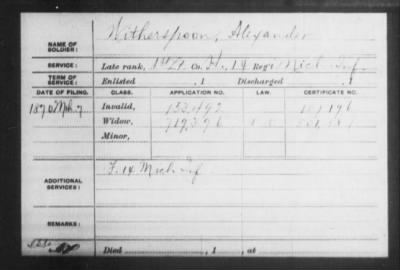 NAME OF SOLDIER: Witherspoon, Alexander
SERVICE: Late rank, 1st Lt. Co. H, 14 Reg't Mich. Inf.
TERM OF SERVICE: Enlisted , 1 Discharged , 1
DATE OF FILING. CLASS. APPLICATION NO. LAW. CERTIFICATE NO.
1870 Mch 7 Invalid, 153,492
Widow,
Minor,
ADDITIONAL SERVICES: F. 14 Mich Inf
REMARKS:
Died , 1 , at